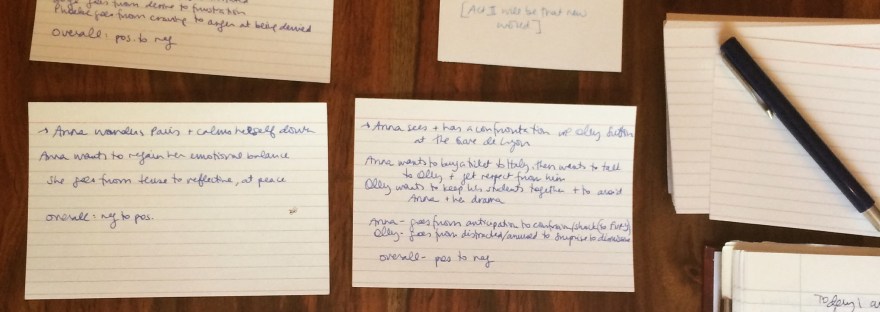 goes from desire to frustration
Phoebe goes from craving to anger at being denied
overall: pos. to neg
[Act II will be that new
world]
→ Anna wanders Paris + calms herself down
Anna wants to regain her emotional balance
She goes from tense to reflective, at peace
overall: neg to pos.
→ Anna sees + has a confrontation w/ Olly Sutton
at the Gare de Lyon
Anna wants to buy a ticket to Italy, then wants to talk
to Olly + get respect from him
Olly wants to keep his students together + to avoid
Anna + her drama
Anna - goes from anticipation to
Olly - goes from distracted/amused to surprise to
overall - pos to neg